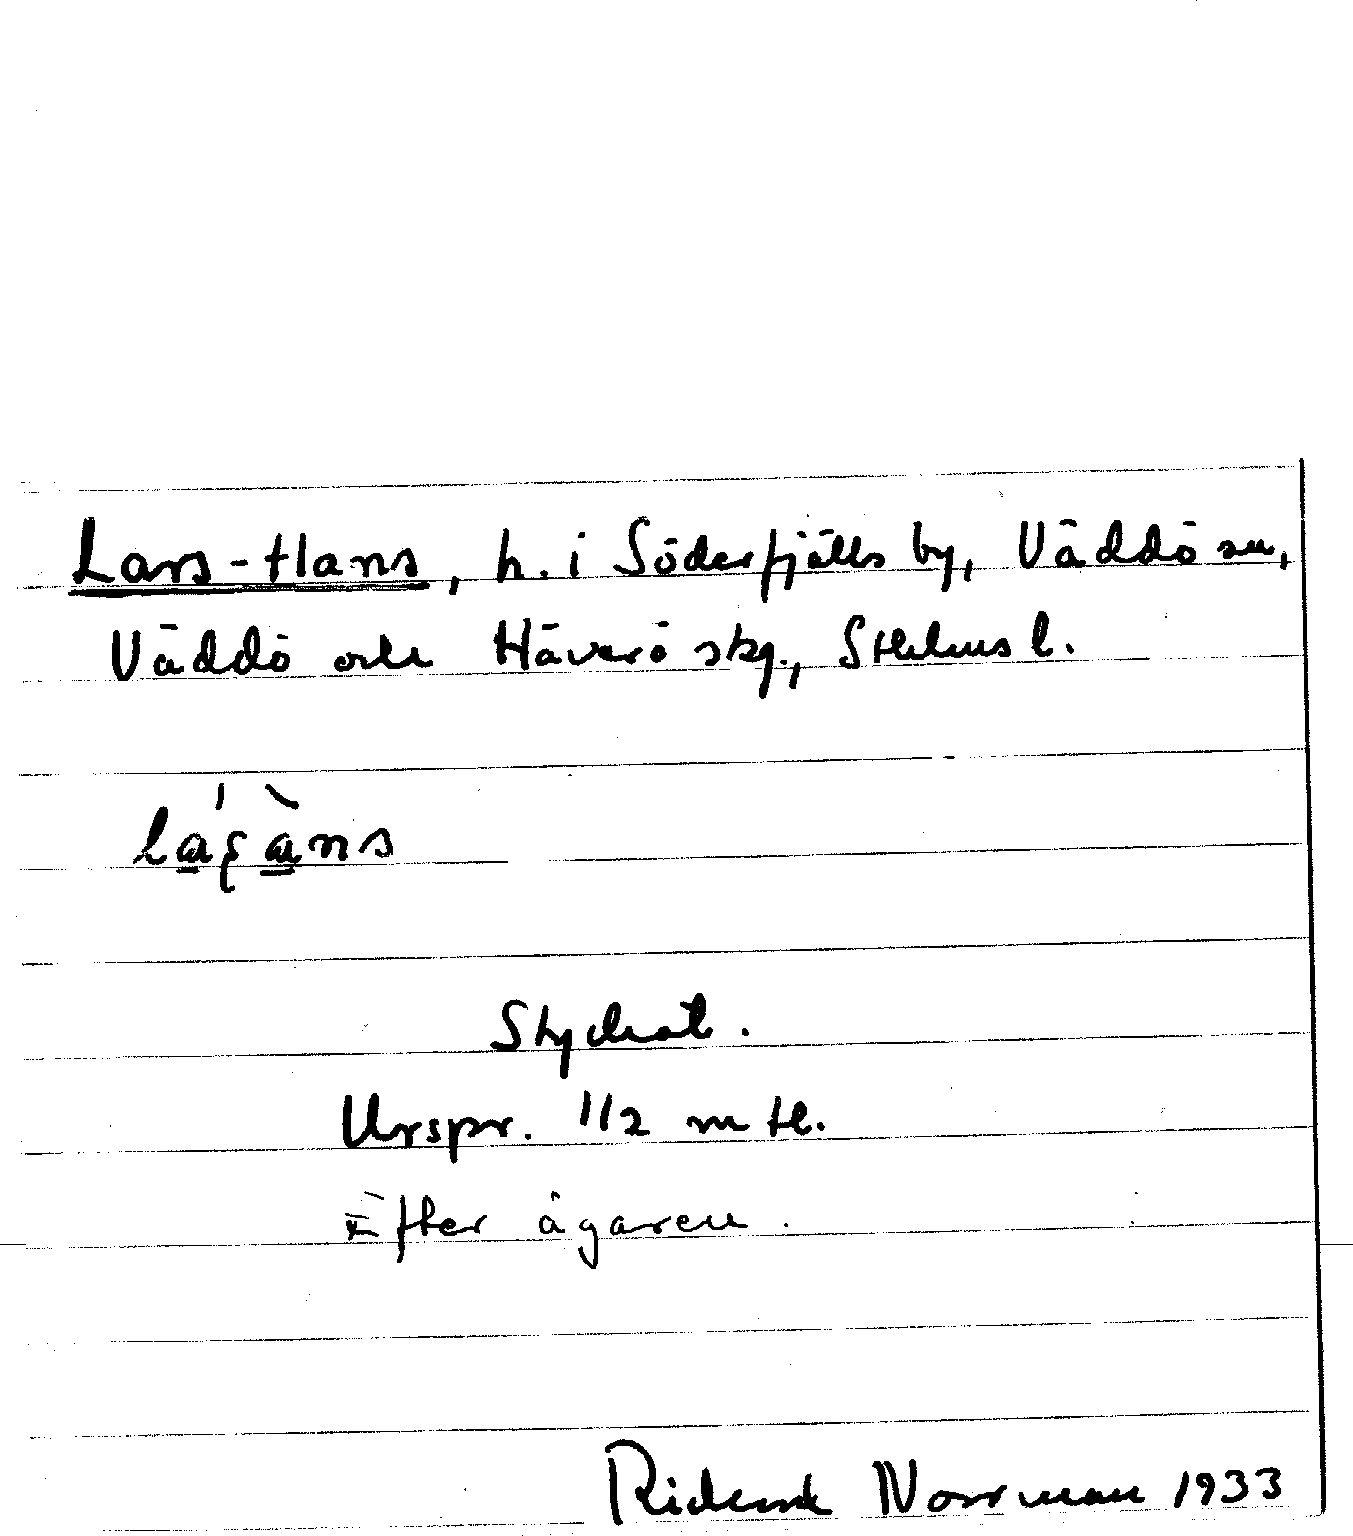 Lars-Hans, h. i Söderfjälls by, Väddö sn,
Väddö och Häverö skg., Sthlms l.
Styckat.
Urspr. 1/2 mtl.
Efter ägaren.
Rickard Norrman 1933